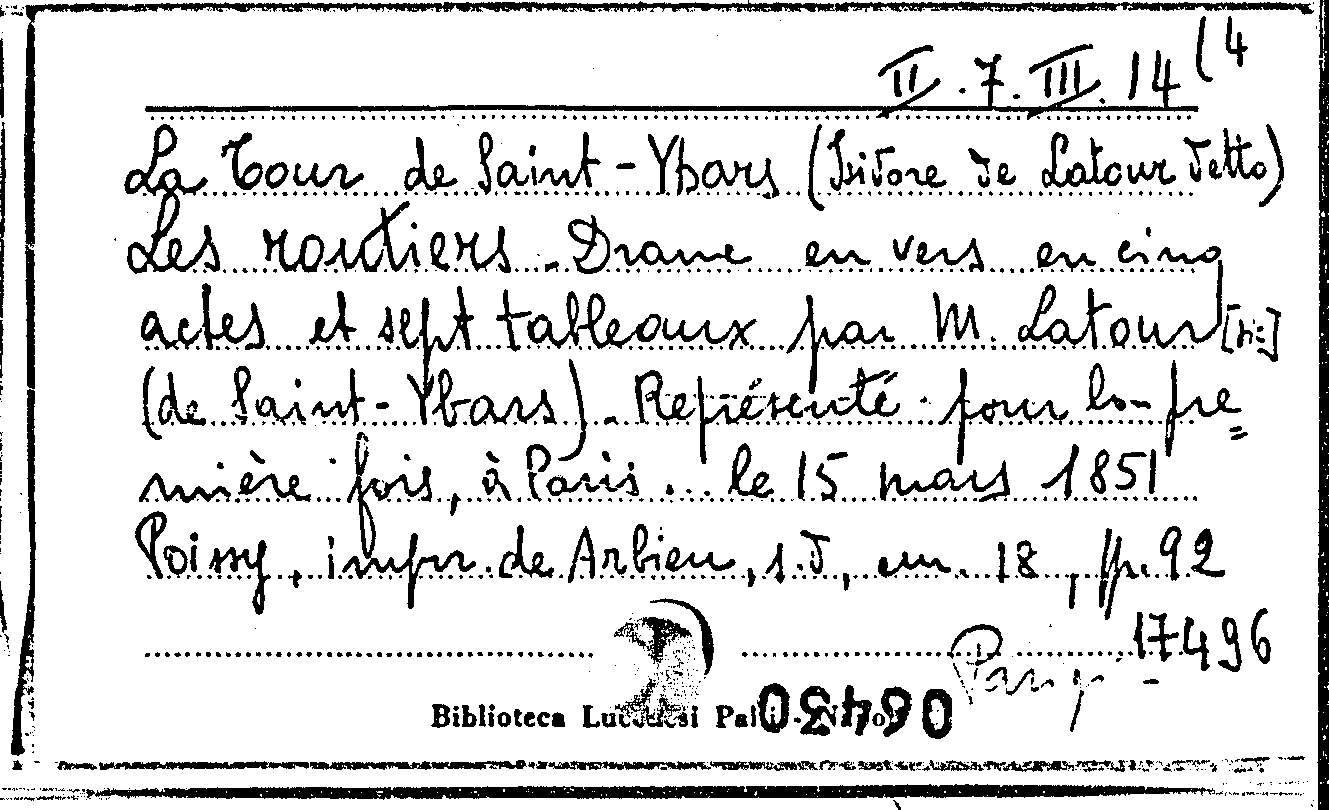 II.7.III.14(4
La Tour de Saint-Ybars (Isidore de Latour detto)
Les routiers. Drame en vers en cinq
actes et sept tableaux par M. Latour [sic]
(de Saint-Ybars). Représenté pour la pre=
mière fois, à Paris... le 15 mars 1851
Poissy, impr. de Arbieu, s.d., in. 18, pp. 92
17496
Biblioteca Lucchesi Palli - Napoli
06430